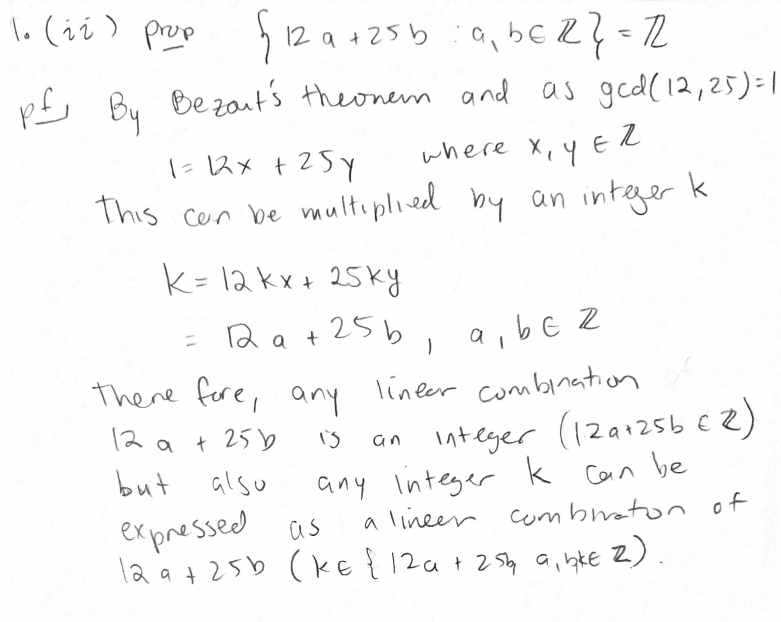 1. (ii) prop { 12a + 25b : a, b ∈ ℤ } = ℤ
pf, By Bezout's theorem and as gcd(12, 25) = 1
1 = 12x + 25y where x, y ∈ ℤ
This can be multiplied by an integer k
k = 12kx + 25ky
= 12a + 25b, a, b ∈ ℤ
Therefore, any linear combination
12a + 25b is an integer (12a + 25b ∈ ℤ)
but also any integer k can be
expressed as a linear combination of
12a + 25b (k ∈ { 12a + 25b, a, b ∈ ℤ).